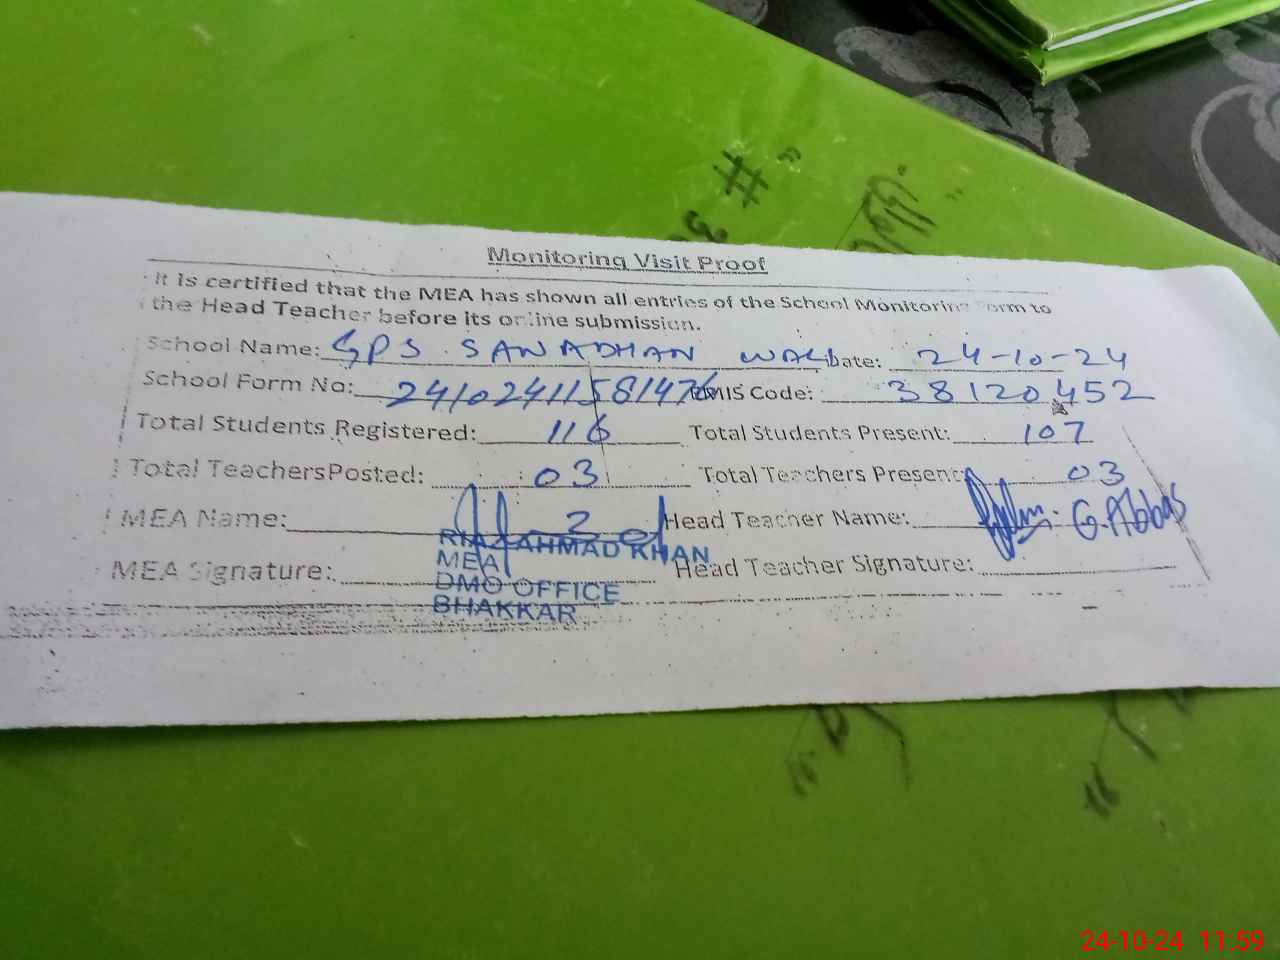 Monitoring Visit Proof
It is certified that the MEA has shown all entries of the School Monitoring Form to
the Head Teacher before its online submission.
School Name: GPS SANADHAN WALI Date: 24-10-24
School Form No: 24102411581476 EMIS Code: 38120452
Total Students Registered: 116 Total Students Present: 107
Total Teachers Posted: 03 Total Teachers Present: 03
MEA Name: Head Teacher Name: G.Abbas
AHMAD KHAN
MEA
MEA Signature: Head Teacher Signature:
DMO OFFICE
BHAKKAR
24-10-24 11:59